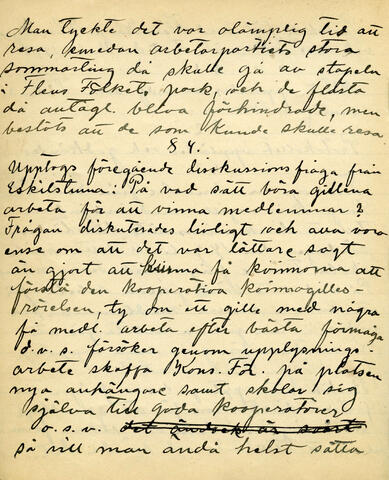 Man tyckte det var olämplig tid att
resa, emedan arbetarpartiets stora
sommarting då skulle gå av stapeln
i Flens Folkets park, och de flesta
då antagl. bliva förhindrade, men
beslöts att de som kunde skulle resa.
§ 4.
Upptogs föregående disskussionsfråga från
Eskilstuna: På vad sätt böra gillena
arbeta för att vinna medlemmar?
Frågan diskuterades livligt och alla voro
ense om att det var lättare sagt
än gjort att kunna få kvinnorna att
förstå den kooperativa kvinnogilles-
rörelsen, ty om ett gille med några
få medl. arbeta efter bästa förmåga
d.v.s. försöker genom upplysnings-
arbete skaffa Kons. För. på platsen
nya anhängare samt skolar sig
själva till goda kooperatörer
o.s.v. det ändock är svårt
så vill man ändå helst sätta